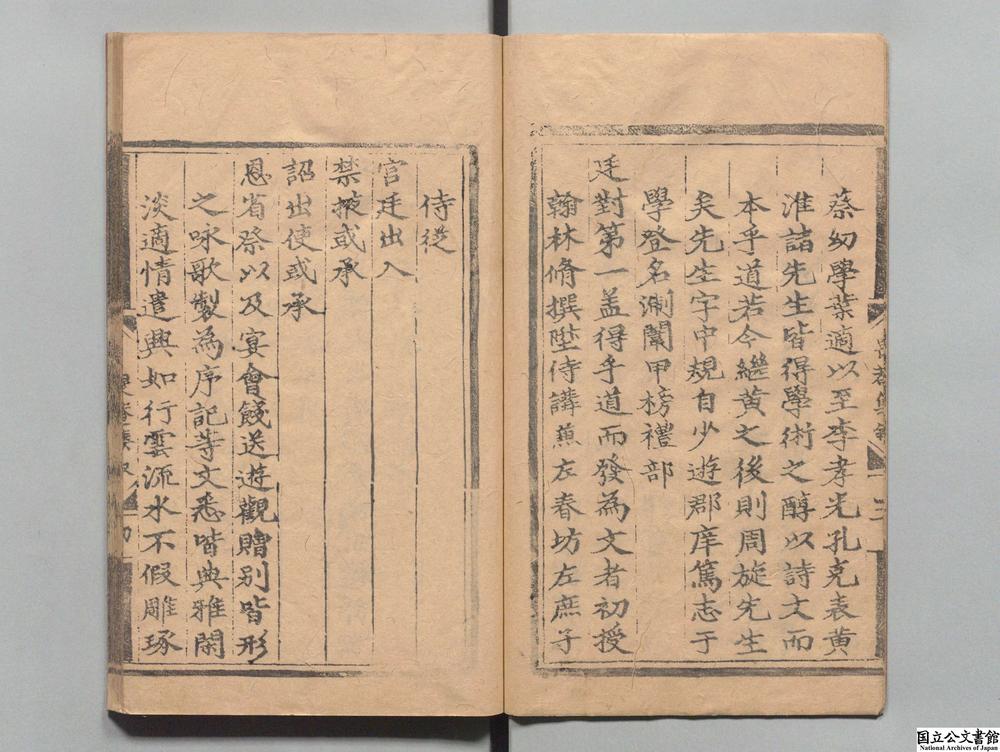 蔡幼學葉適以至李孝光孔克表黃
淮諸先生皆得學術之醇以詩文而
本乎道若今繼黃之後則周旋先生
矣先生字中規自少遊郡庠篤志于
學登名淛闈甲榜禮部
廷對第一盖得乎道而發為文者初授
翰林脩撰陞侍講蕉左春坊左庶子
侍從
宫廷出入
禁掖或承
詔出使或承
恩省祭以及宴會餞送遊觀贈别皆形
之咏歌製為序記等文悉皆典雅閑
淡適情遣興如行雲流水不假雕琢
国立公文書館
National Archives of Japan